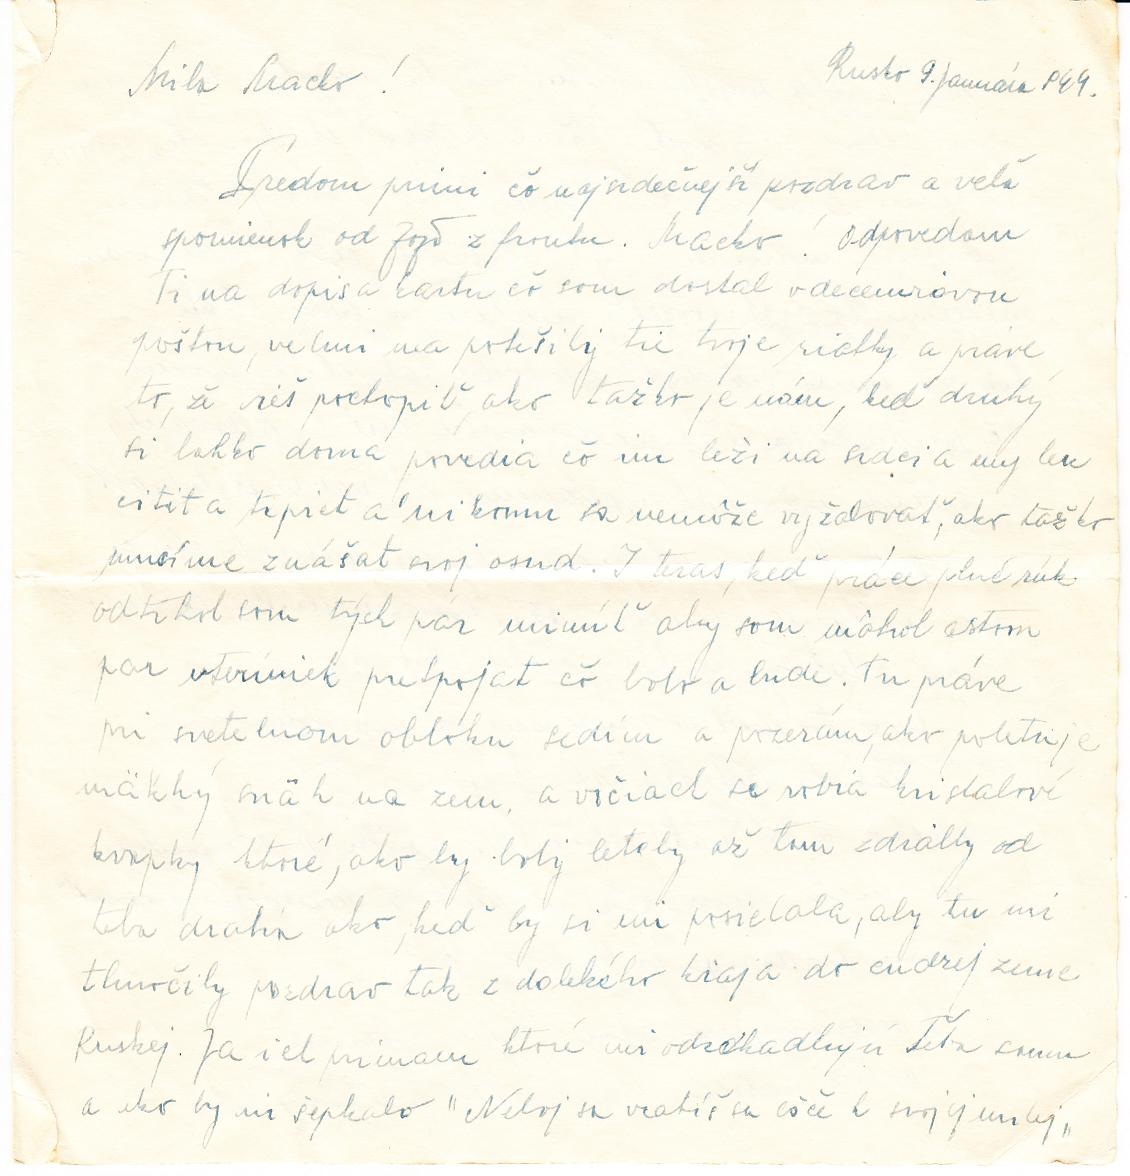 Milá Macko!
Rusko 9. januára 1944.
Predom prími čo najsrdečnejší pozdrav a vela
spomienok od Jožo z frontu. Macko! Odpovedam
Ti na dopis a kartu čo som dostal v decemrovou
poštou, velmi ma potešily tie tvoje riadky a práve
to, že vieš pochopiť, ako tažko je nám, keď druhý
si lahko doma povedia čo im leži na srdci a my len
citit a trpiet a nikomu sa nemôže vyžalovať, ako tažko
musíme znášat svoj osud. I teraz, keď práce plné rúk
odtrhol som tých pár minúť aby som môhol
par pretpojat čo bolo a bude. Tu práve
pri svetelnom obloku sedím a pozerám, ako poletuje
mäkký snäh na zem, a vočiach sa robia kristalové
kvapky ktoré, ako by boly letely až tam zdiálky od
teba drahá ako, keď by si mi posielala, aby tu mi
tlmočily pozdrav tak z dalekého kraja do cudzej zeme
Ruskej. Ja ich prímam ktoré mi Těba samu
a ako by mi šepkalo "Neboj sa vratíš sa ešče k svojej milej"